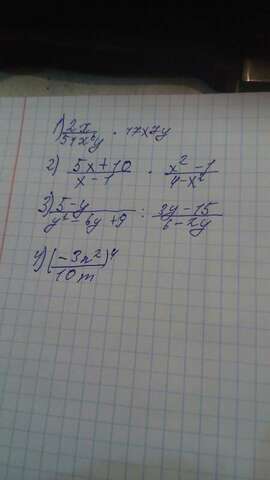 1) 2x/51x⁶y · 17x7y
2) 5x+10/x-1 · x²-1/4-x²
3) 5-y/y²-6y+9 : 3y-15/6-2y
4) (-3n²/10m)⁴